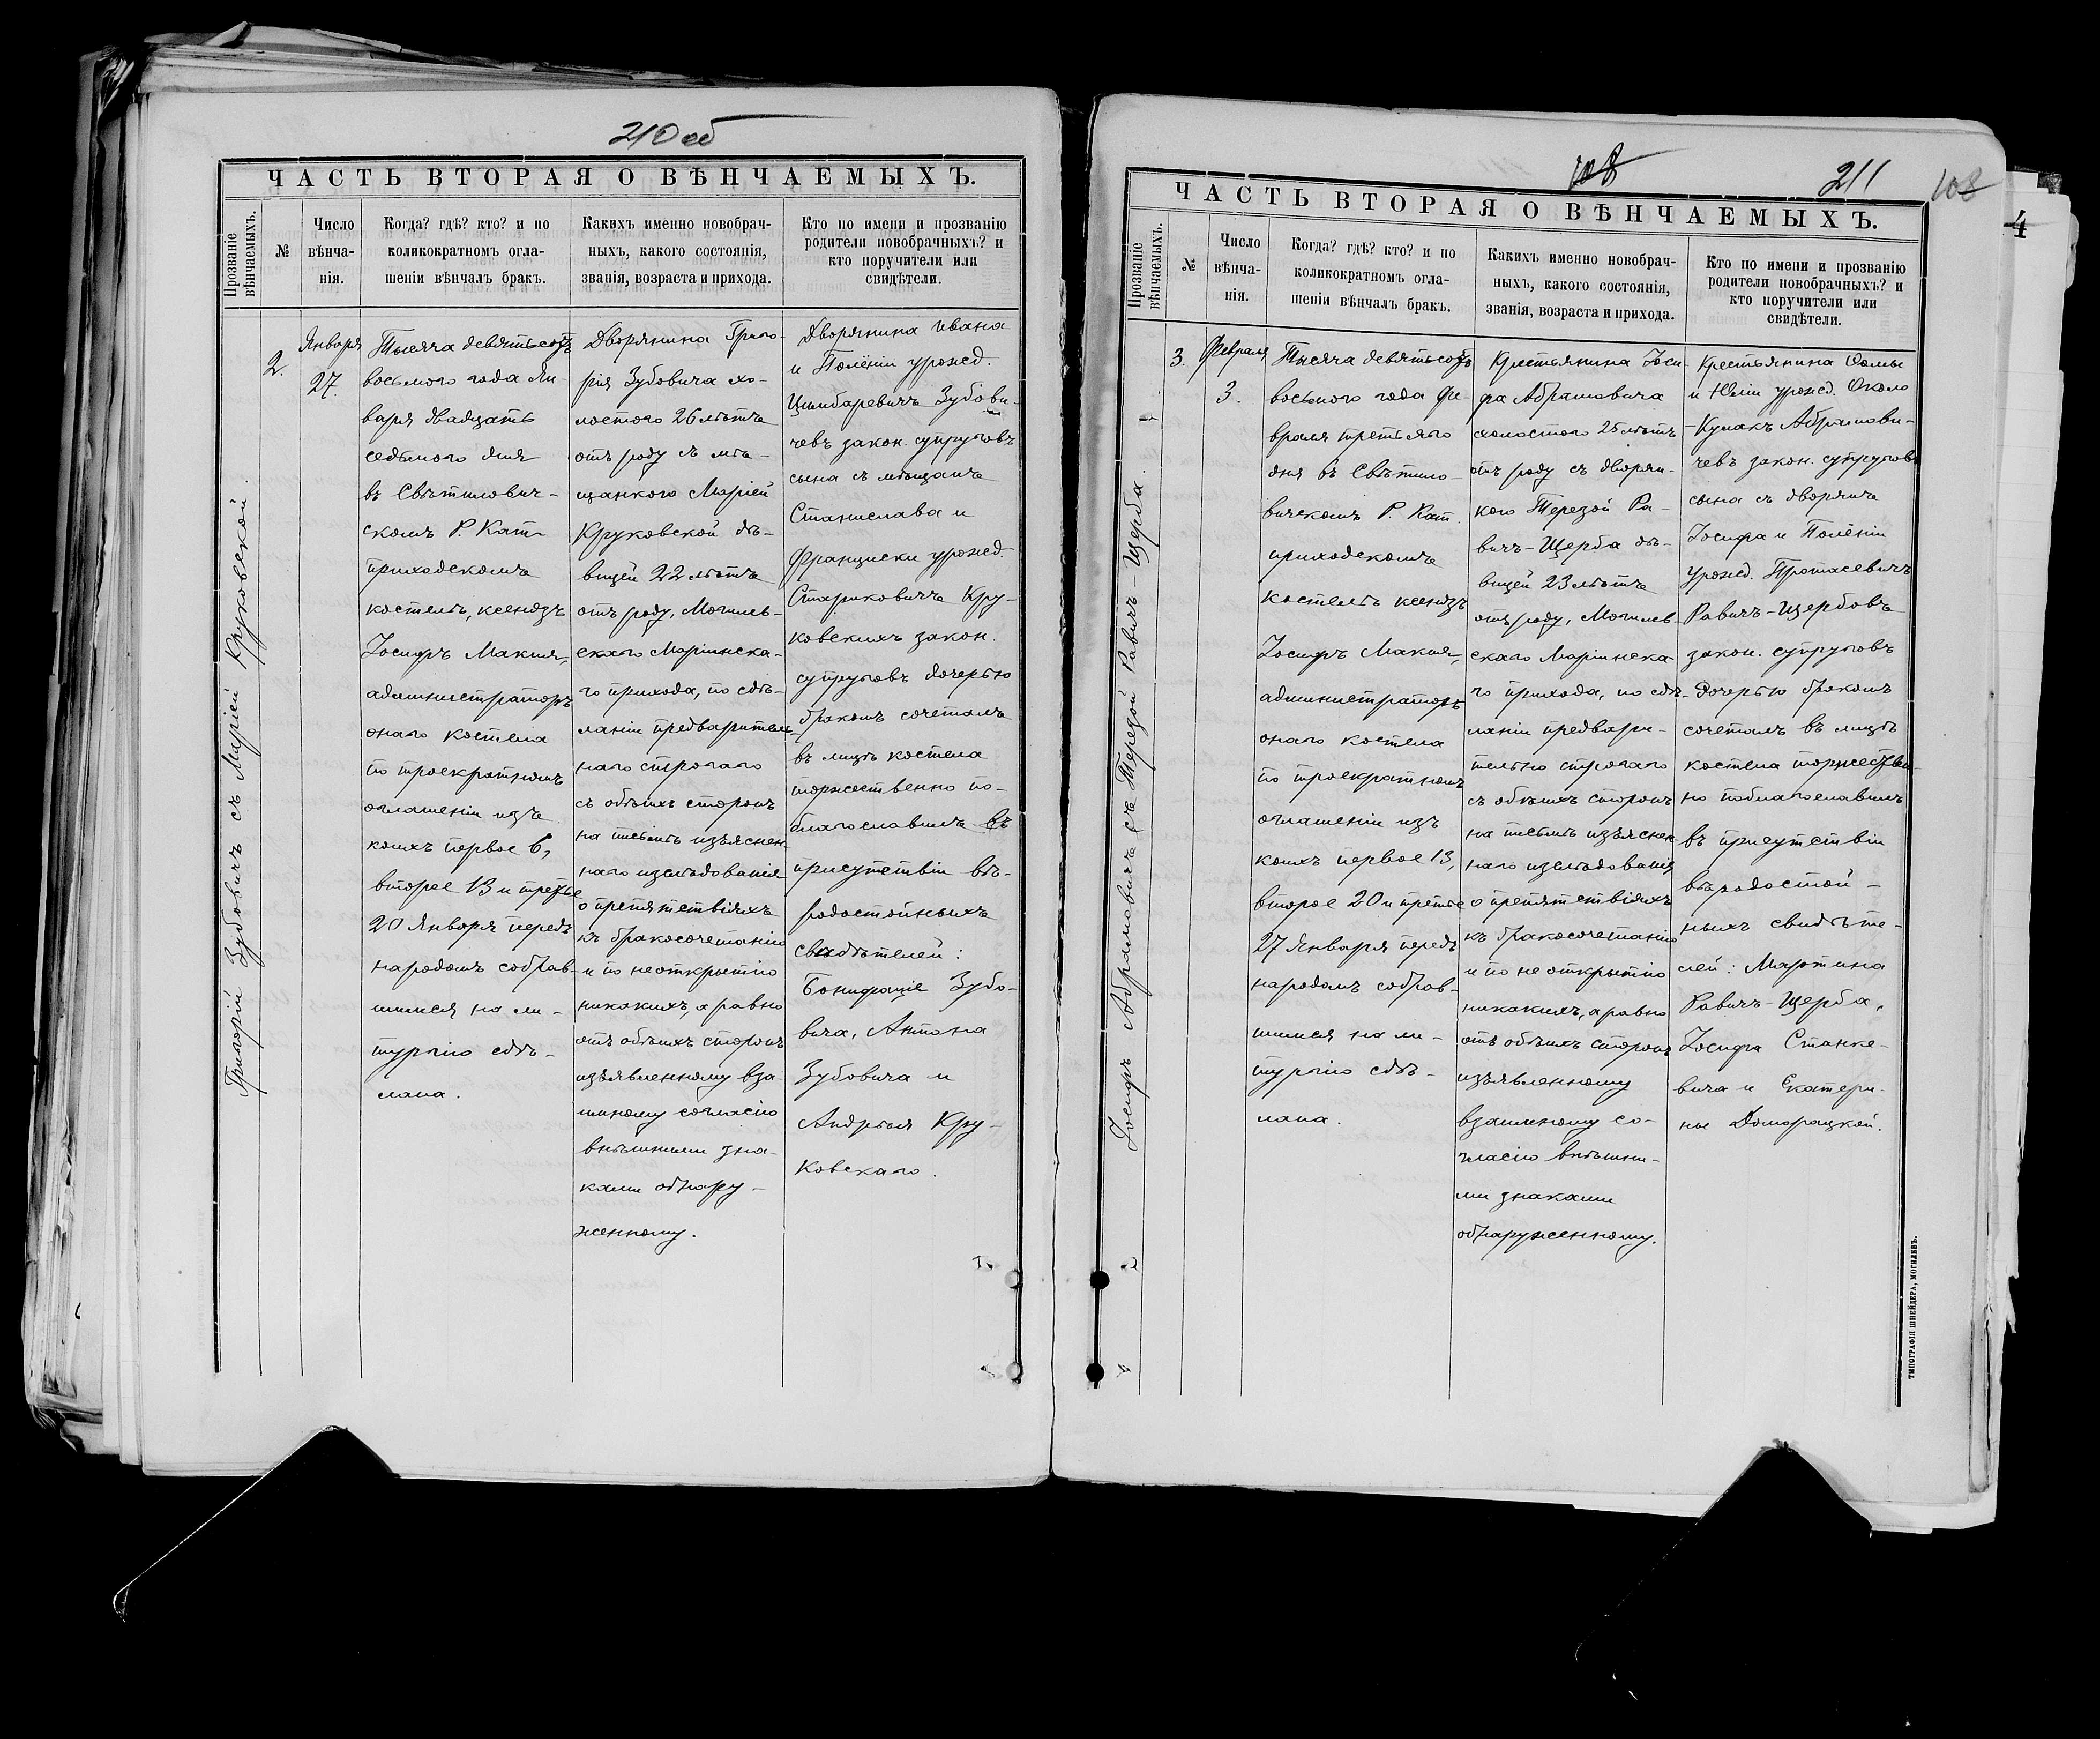 210 об
ЧАСТЬ ВТОРАЯ О ВѢНЧАЕМЫХЪ.
Прозваніе
вѣнчаемыхъ.
№
Число
вѣнча-
нія.
Когда? гдѣ? кто? и по
коликократномъ огла-
шеніи вѣнчалъ бракъ.
Какихъ именно новобрач-
ныхъ, какого состоянія,
званія, возраста и прихода.
Кто по имени и прозванію
родители новобрачныхъ? и
кто поручители или
свидѣтели.
Григорій Зубовичъ съ Маріей Круковской.
2.
Января
27.
Тысяча девятьсотъ
восьмого года Ян-
варя двадцать
седьмого дня
въ Свѣтилович-
скомъ Р. Кат.
приходскомъ
костелѣ, ксендзъ
Іосифъ Макия,
администраторъ
онаго костела
по троекратномъ
оглашеніи изъ
коихъ первое 6,
второе 13 и третье
20 Января передъ
народомъ собрав-
шимся на ли-
тургію сдѣ-
лана.
Дворянина Григо-
рія Зубовича хо-
лостого 26 лѣтъ
отъ роду съ мѣ-
щанкою Маріей
Круковской дѣ-
вицей 22 лѣтъ
отъ роду, Могилев-
скаго Маріинска-
го прихода, по сдѣ-
ланіи предварител-
наго строгаго
съ обѣихъ сторонъ
на письмѣ изъяснен
наго изслѣдованія
о препятствіяхъ
къ бракосочетанію
и по неоткрытію
никакихъ, а равно
отъ обѣихъ сторонъ
изъявленному вза-
имному согласію
внѣшними зна-
ками обнару-
женному.
Дворянина Ивана
и Полёніи урожд.
Цымбаревичъ Зубови-
чевъ закон. супруговъ
сына съ мѣщанъ
Станислава и
Франциски урожд.
Стариковичъ Кру-
ковскихъ закон.
супруговъ дочерью
бракомъ сочеталъ
въ лицѣ костела
торжественно по-
благословилъ въ
присутствіи вѣ-
родостойныхъ
свидѣтелей:
Бонифація Зубо-
вича, Антона
Зубовича и
Андрея Кру-
ковскаго.
108
211
108
4
ЧАСТЬ ВТОРАЯ О ВѢНЧАЕМЫХЪ.
Прозваніе
вѣнчаемыхъ.
№
Число
вѣнча-
нія.
Когда? гдѣ? кто? и по
коликократномъ огла-
шеніи вѣнчалъ бракъ.
Какихъ именно новобрач-
ныхъ, какого состоянія,
званія, возраста и прихода.
Кто по имени и прозванію
родители новобрачныхъ? и
кто поручители или
свидѣтели.
Іосифъ Абрамовичъ съ Терезой Равичъ-Щерба.
3.
Февраля
3.
Тысяча девятьсотъ
восьмого года Фе-
враля третьяго
дня въ Свѣтило-
вичскомъ Р. Кат.
приходскомъ
костелѣ ксендзъ
Іосифъ Макия,
администраторъ
онаго костела
по троекратномъ
оглашеніи изъ
коихъ первое 13,
второе 20 и третье
27 Января передъ
народомъ собрав-
шимся на ли-
тургію сдѣ-
лана.
Крестьянина Іоси-
фа Абрамовича
холостого 25 лѣтъ
отъ роду съ дворян-
кою Терезой Ра-
вичъ-Щерба дѣ-
вицей 23 лѣтъ
отъ роду, Могилев-
скаго Маріинска-
го прихода, по сдѣ-
ланіи предвари-
тельно строгаго
съ обѣихъ сторонъ
на письмѣ изъяснен
наго изслѣдованія
о препятствіяхъ
къ бракосочетанію
и по не открытію
никакихъ, а равно
отъ обѣихъ сторонъ
изъявленному
взаимному со-
гласію внѣшни-
ми знаками
обнаруженному.
Крестьянина Фомы
и Юліи урожд. Около
-Кулакъ Абрамови-
чевъ закон. супруговъ
сына съ дворянъ
Іосифа и Полёніи
Урожд. Протасевичъ
Равичъ-Щербовъ
закон. супруговъ
дочерью бракомъ
сочеталъ въ лицѣ
костела торжествен-
но поблагословилъ
въ присутствіи
вѣродостой-
ныхъ свидѣте-
лей: Мартина
Равичъ-Щерба,
Іосифа Станке-
вича и Екатери-
ны Доморацкой.
ТИПОГРАФІЯ ШНЕЙДЕРА, МОГИЛЕВЪ.